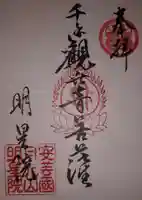 奉拝
千手観世音菩薩
明星院
安芸國
明星院